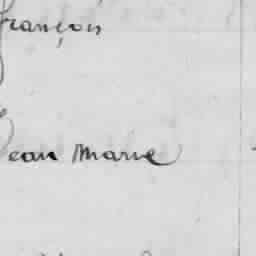 françois
Jean Marie